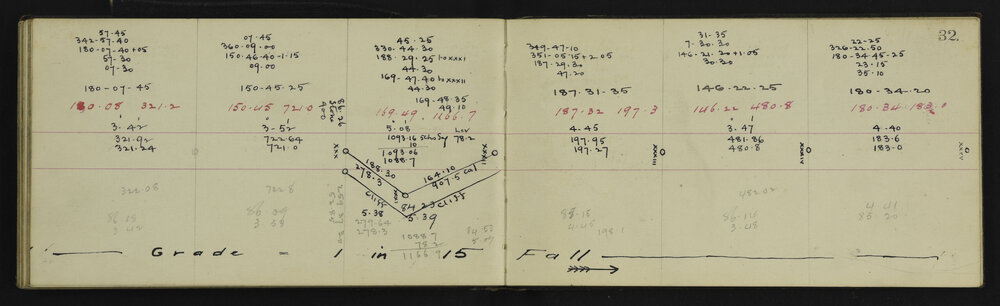 32.
57.45
342-57.40
180-07-40+05
57-30
07.30
180-07-45
180.08 321.2
3.42
321.92
321.24
322.08
86 25
3 42
07.45
360.09.00
150.46-40-1.15
09.00
150.45.25
150.45 721.0
3-52
722.64
721.0
722.8
86.09
3 53
45.25
330.44.30
188.29.25 to XXXI
44.30
169.47.40 to XXXII
44.30
169.48.35
49.10
169.49. 1166.7
5.08
1093.16
10
1093.06
1088.7
78.2
XXX
XXXI
XXXII
188.30
278.3
164.10
907.5 cal
Cliff
84 23 Cliff
5.38
5.39
279.64
278.3
1088.7
78.2
1166.9
349-47-10
351-05 15+2.05
187.29.30
47.20
187.31.35
187.32 197.3
4.45
197.95
197.27
XXXIII
85.15
4.45
198.1
31-35
7.30.30
146-21.20+1.05
30.30
146.22.25
146.22 480.8
3.47
481.86
480.8
XXXIV
482.02
86.14
3.48
22-25
326-22.50
180-34-45-25
23.15
35.10
180.34.20
180.34. 183.0
4.40
183.6
183.0
XXXV
4.41
85.20
Grade - 1 in 15 Fall